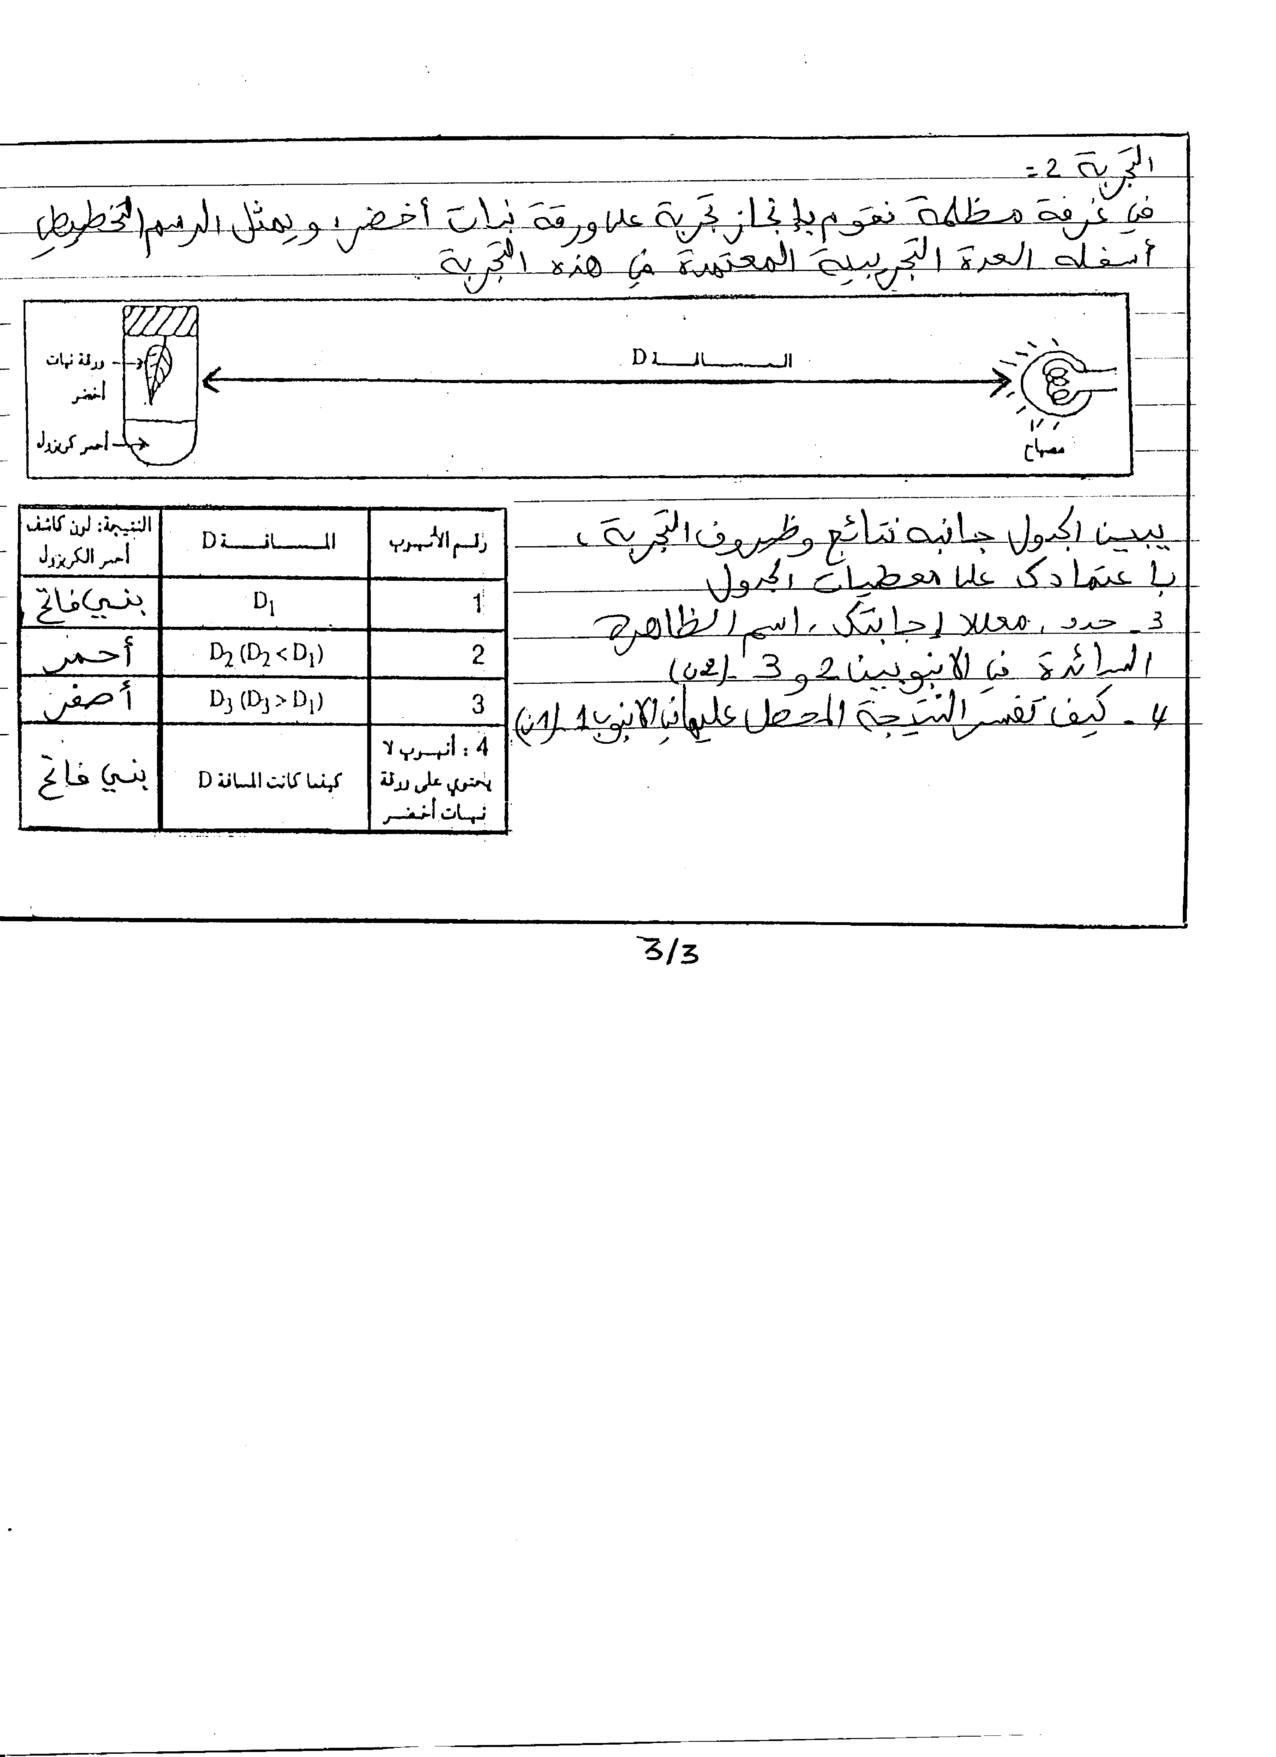 التجربة 2 =
في غرفة مظلمة نقوم بإنجاز تجربة على ورقة نبات أخضر، ويمثل الرسم التخطيطي
أسفله العدة التجريبية المعتمدة في هذه التجربة
ورقة نبات
أخضر
أحمر كريزول
المسافة D
مصباح
يبين الجدول جانبه نتائج وظروف التجربة،
باعتمادك على معطيات الجدول
3 - حدد، معللا إجابتك، اسم الظاهرة
السائدة في الانبوبين 2 و 3 - (2ن)
4 - كيف تفسر النتيجة المحصل عليها في الانبوب 1 - (1ن)
رقم الأنبوب | المسافة D | النتيجة: لون كاشف أحمر الكريزول
1 | D1 | بني فاتح
2 | D2 (D2 < D1) | أحمر
3 | D3 (D3 > D1) | أصفر
4 : أنبوب لا يحتوي على ورقة نبات أخضر | كيفما كانت المسافة D | بني فاتح
3/3